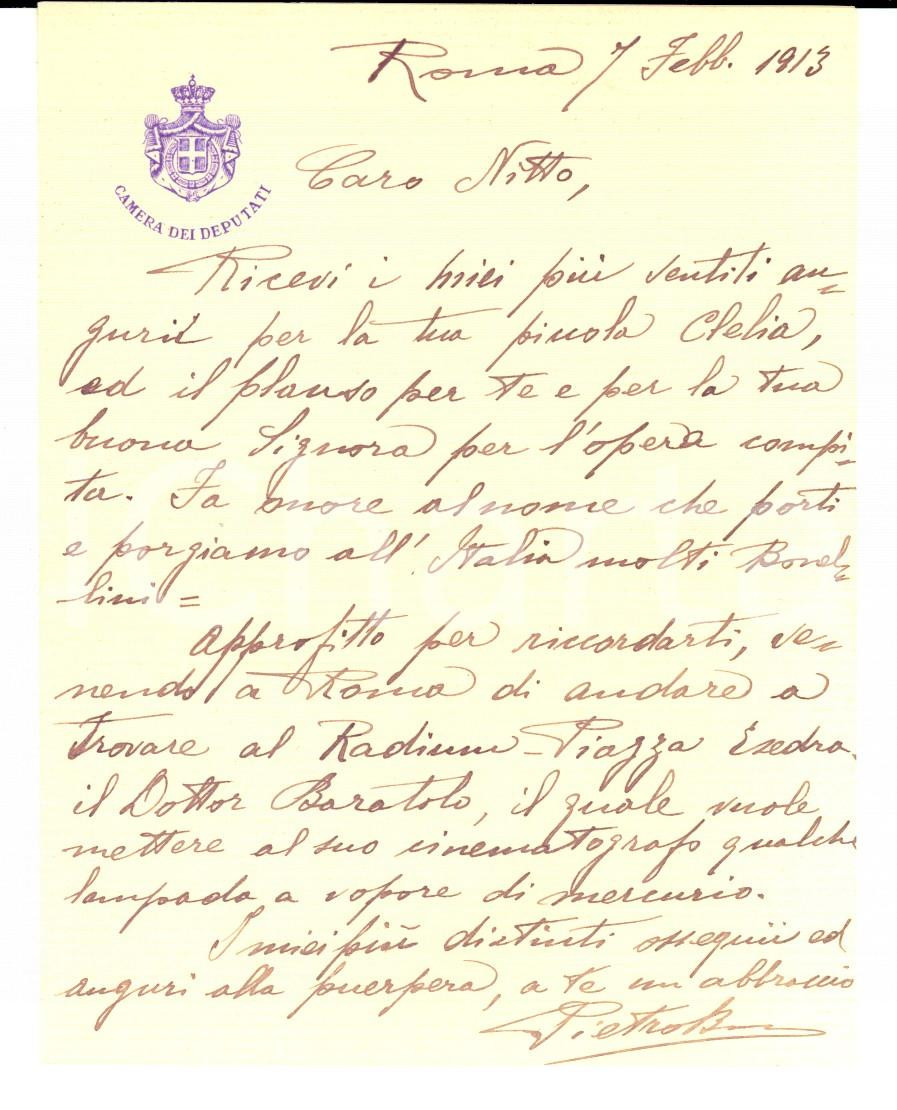 Roma 7 Febb. 1913
CAMERA DEI DEPUTATI
Caro Nitto,
Ricevi i miei più sentiti au-
gurii per la tua piccola Clelia,
ed il plauso per te e per la tua
buona Signora per l'opera compi-
ta. Fa onore al nome che porti
e porgiamo all'Italia molti
lini =
Approfitto per riccordarti, ve-
nendo a Roma di andare a
trovare al Radium - Piazza Esedra.
il Dottor Baratolo, il quale vuole
mettere al suo cinematografo qualche
lampada a vapore di mercurio.
I miei più distinti ossequii ed
auguri alla puerpera, a te un abbraccio
Pietro